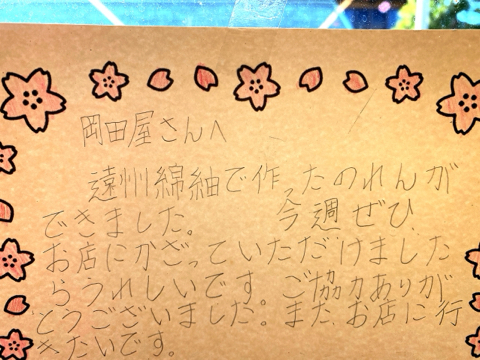 岡田屋さんへ
遠州綿紬で作ったのれんが
できました。 今週ぜひ
お店にかざっていただけました
らうれしいです。ご協力ありが
とうございました。また、お店に行
きたいです。